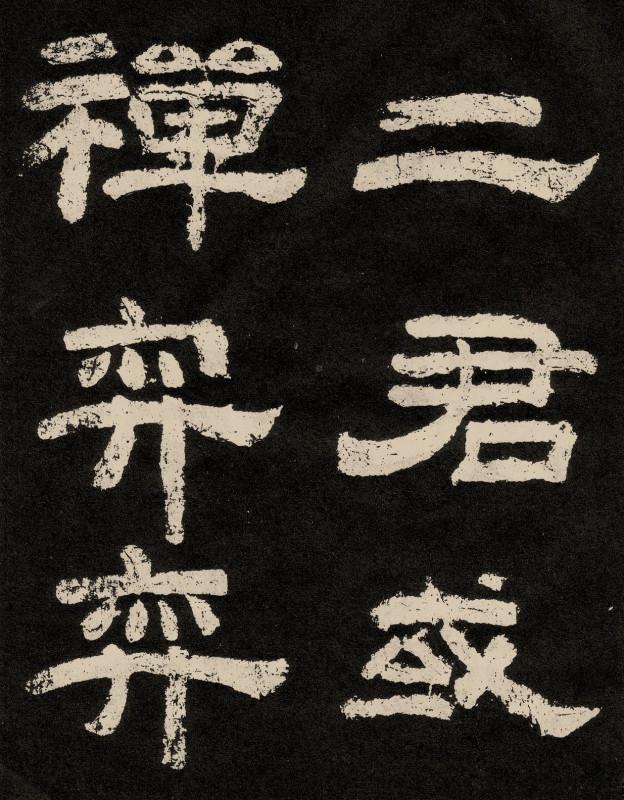 二君或
禪弈弈